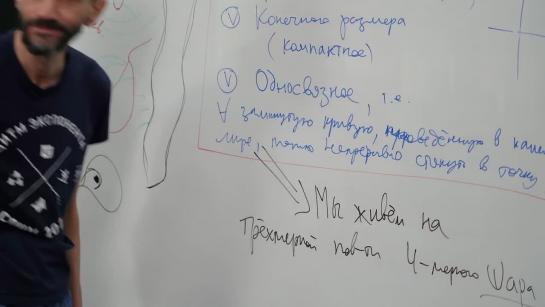 Ⓥ Конечного размера
(компактное)
Ⓥ Односвязное, т.е.
∀ замкнутую кривую, проведённую в каком
мире, можно непрерывно стянуть в точку
Мы живём на
трёхмерной пов-ти 4-мерного шара